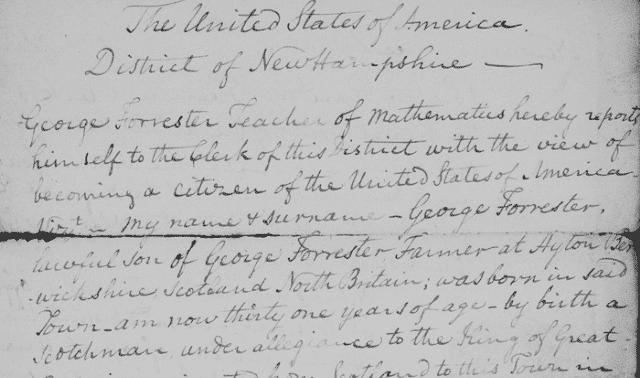 The United States of America.
District of New Hampshire —
George Forrester Teacher of Mathematics hereby reports
himself to the Clerk of this District with the view of
becoming a citizen of the United States of America.
My name & surname – George Forrester,
lawful son of George Forrester, Farmer at Ayton Ber
wickshire Scotland North Britain; was born in said
Town – am now thirty one years of age – by birth a
Scotchman, under allegiance to the King of Great
Scotland to this Town in